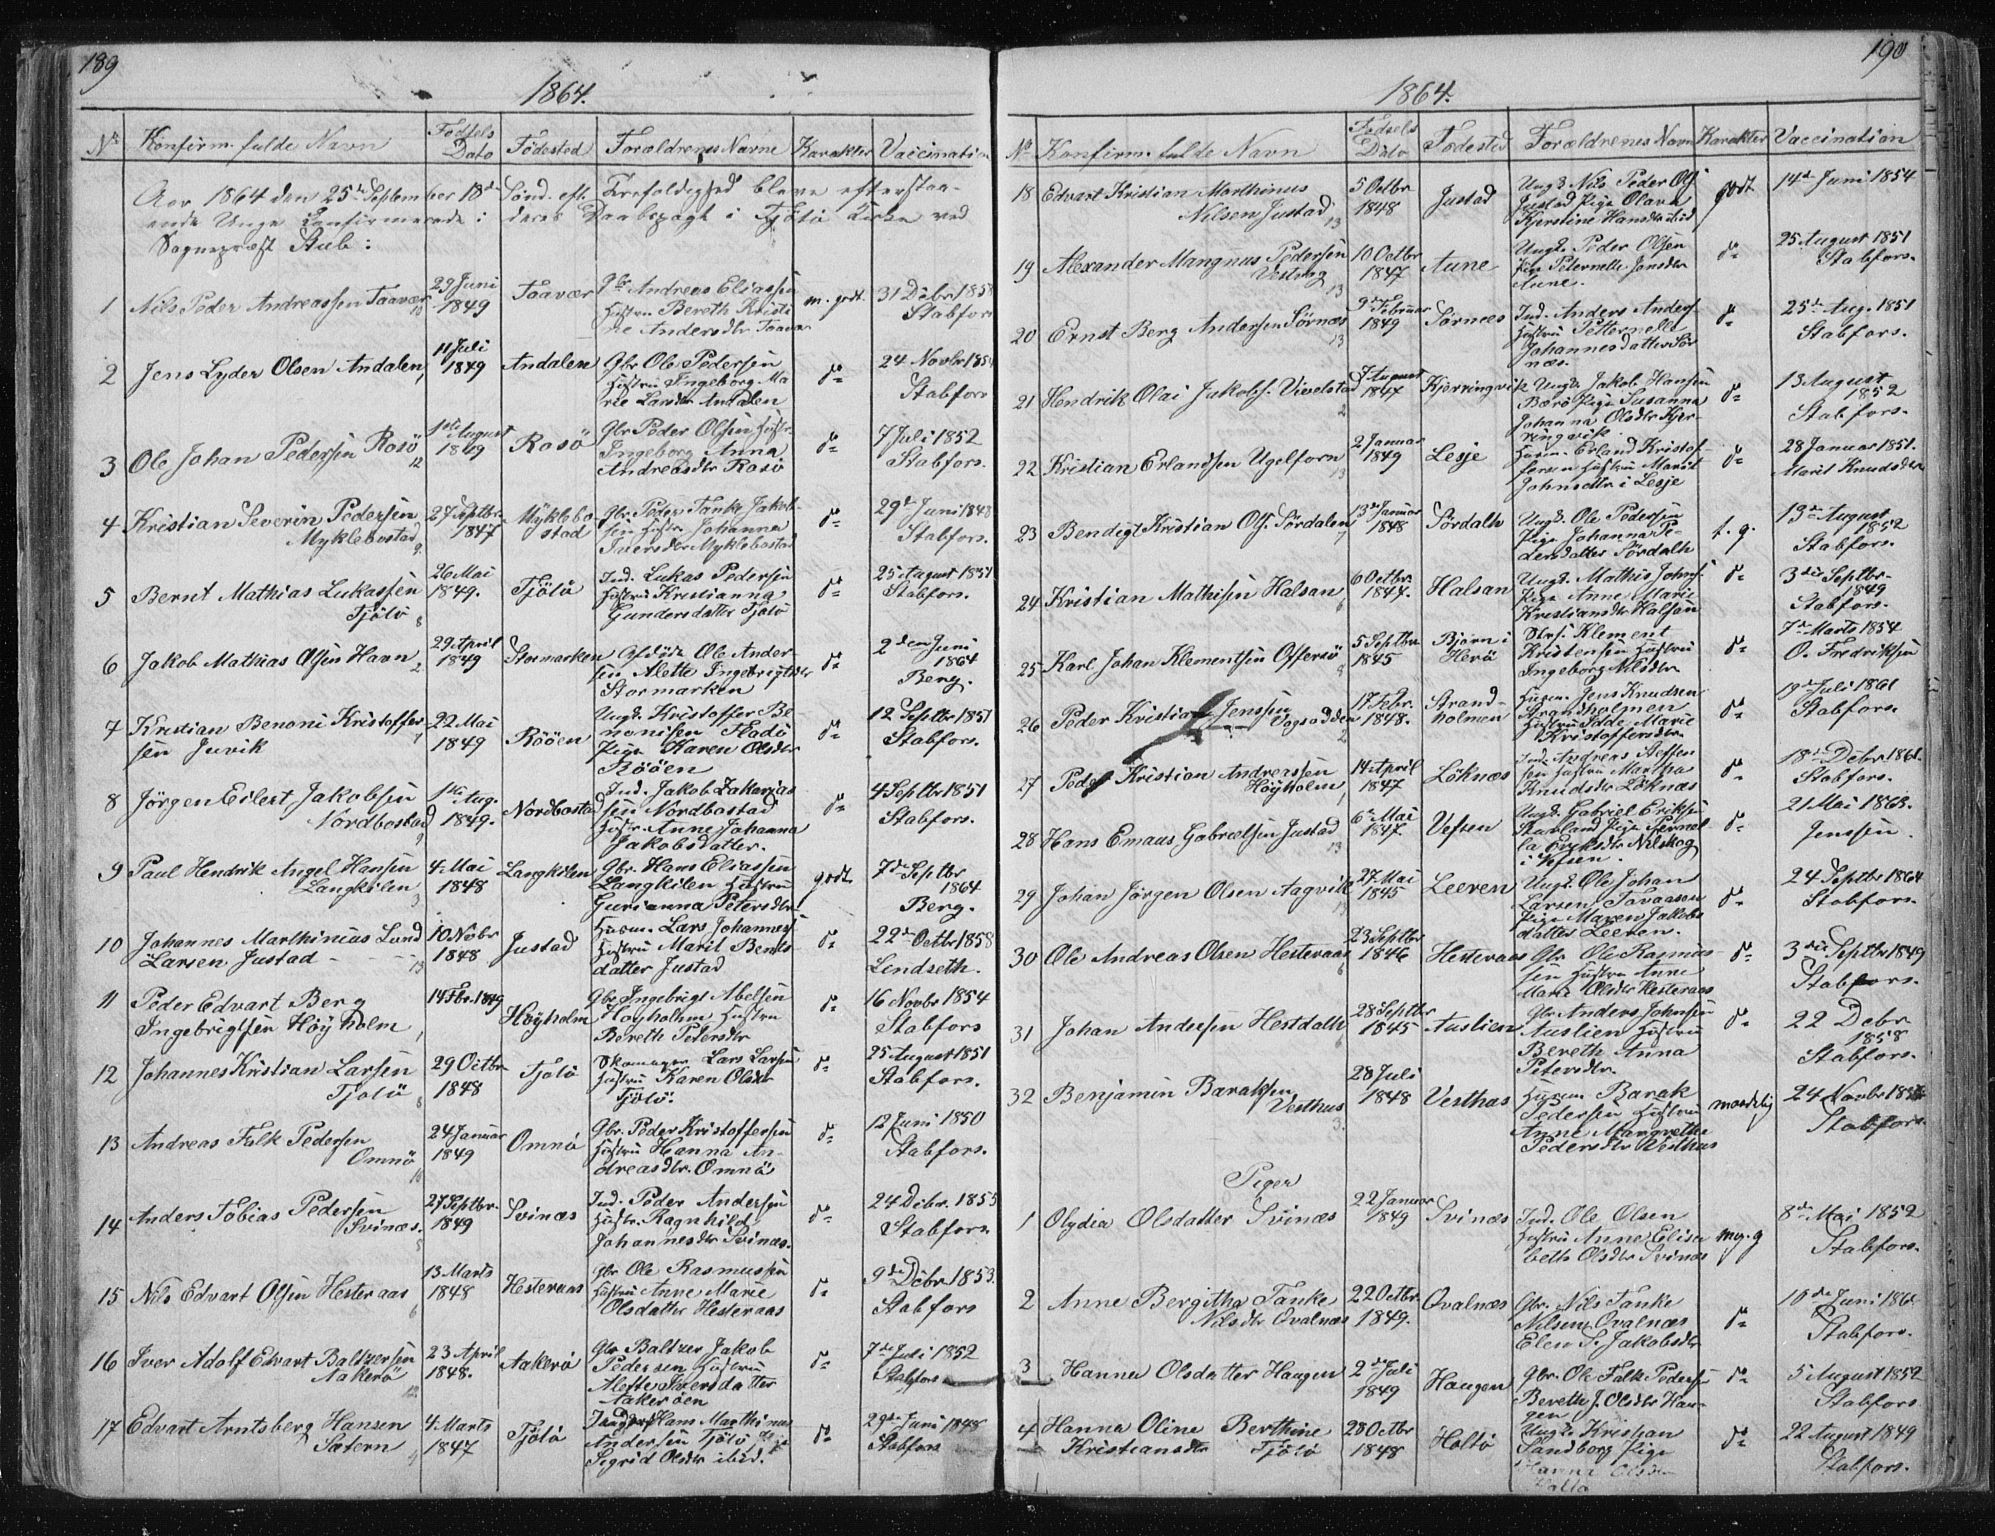 189
1864.
No Konfirm. fulde Navn Fødsels Dato Födested Forældrenes Navne Karakter Vaccination
Aar 1864 den 25de September 18de Sönd. eft. Trefoldighed bleve efterstaa-
ende Unge konfirmerede i deres Daabspagt i Tjötö Kirke ved
Sognepræst Stub:
1 Nils Peder Andreassen Taavær 10 29 Juni 1849 Taavær Gbr Andreas Eliassen Hustru Bereth Kristi ne Andersdtr Taavær m. godt. 31 Debr 185 Stabfors
2 Jens Lyder Olsen Andalen 1 11 Juli 1849 Andalen Gbr Ole Pedersen Hustru Ingeborg Ma rie Larsdtr Andalen do 24 Novbr 185 Stabfors
3 Ole Johan Pedersen Rosö 12 1ste August 1849 Rosö Gbr Peder Olsen Hustr. Ingeborg Anna Andreasdtr Rosö do 7 Juli 1852 Stabfors.
4 Kristian Severin Pedersen Myklebostad 9 27 Septbr. 1847 Myklebo stad Gbr Peder Tanke Jakob- sen Hustr. Johanna Iversdtr Myklebostad do 29de Juni 1848 Stabfors.
5 Bernt Mathias Lukassen Tjötö 8 26 Mai 1849. Tjötö Ind. Lukas Pedersen Hustru Kristianna Gundersdatter Tjötö do 25 August 1851 Stabfors.
6 Jakob Mathias Olsen Havn 2 29 April 1849 Stormarken Afdöde Ole Ander sen Alette Ingebrigtsdtr Stormarken do 2den Juni 1864 Berg.
7 Kristian Benoni Kristoffer sen Juvik 1 22 Mai 1849 Rööen Ungk. Kristoffer Be nonisen Fladö Pige Karen Olsdtr Rööen do 12 Septbr 1851 Stabfors.
8 Jörgen Eilert Jakobsen Nordbostad 9 1ste Aug. 1849. Nordbostad Ind. Jakob Zakarias sen Nordbostad Hustr. Anne Johanna Jakobsdatter. do 4 Septbr 1851 Stabfors.
9 Paul Hendrik Angel Hansen Langkilen 3 4. Mai 1848 Langkilen Gbr. Hans Eliassen Langkilen Hustru Gurianna Petersdtr godt. 7de Septbr 1864 Berg.
10 Johannes Marthinius Lund Larsen Justad 13 10 Nobr 1848 Justad Husm. Lars Johanness. Hustru Marit Bents datter Justad do 22de Octbr 1858 Lindseth.
11 Peder Edvart Berg Ingebrigtsen Höyholm 1 14 Fbr. 1849 Höyholm Gbr Ingebrigt Abelsen Höyholm Hustru Bereth Petersdtr do 16 Novbr 1854 Stabfors
12 Johannes Kristian Larsen Tjötö 8 29 Octbr 1848 Tjötö Skomager Lars Larsen Hustru Karen Olsdtr Tjötö. do 25 August 1851 Stabfors.
13 Andreas Falk Pedersen Omnö 10 24 Januar 1849 Omnö Gbr. Peder Kristoffersen Hustru Hanna An- dreasdtr. Omnö do 12 Juni 1850 Stabfors.
14 Anders Tobias Pedersen Svinæs. 5 27 Septbr. 1849 Svinæs Ind. Peder Andersen Hustr. Ragnhild Johannesdtr Svinæs. do 24 Debr. 1855 Stabfors.
15 Nils Edvart Olsen Hesteraas 6 13 Marts 1848 Hesteraas Gbr Ole Rasmussen Hustru Anne Marie Olsdatter Hesteraas do 9de Debr. 1853. Stabfors
16 Iver Adolf Edvart Baltzersen Aakerö 12 23 April 1848. Aakerö Gbr Baltzer Jakob Pedersen Hustru Alette Iversdatter Aakeröen do 7de Juli 1852 Stabfors
17 Edvart Arntsberg Hansen Sætern 4 4. Marts 1847 Tjötö Hans Marthinus Andersen Tjötö Sigrid Olsdtr ibid. do 29de Juni 1848 Stabfors
190
1864.
No Konfirm. fulde Navn Fødsels Dato Födested Forældrenes Navn Karakter Vaccination
18 Edvart Kristian Marthinus Nilsen Justad 13 5 Octbr 1848 Justad Ungk. Nils Peder Ols. Justad Pige Olava Kjerstine Hansdtr ibid godt 14de Juni 1854
19 Alexander Mangnus Pedersen Vestvog 13 10 Octbr 1847 Aune Ungk. Peder Olsen Pige Peternelle Jensdtr Aune. do 25 August 1851 Stabfors.
20 Ernst Berg Andersen Sörnæs 13 9de Februar 1849 Sörnæs Ind. Anders Anders. Hustru Petternelle Johannesdatter Sör næs. do 25de Aug. 1851 Stabfors.
21 Hendrik Olai Jakobs. Vivelstad 2 7 August 1847 Kjerringvik Ungk. Jakob Hansen Bærö Pige Susanna Johanna Olsdtr Kjer- ringvik do 13 August 1852 Stabfors.
22 Kristian Erlandsen Ugelforn 13 2 Januar 1849 Lesje Husm. Erland Kristof- fersen Hustru Marit Johnsdtr i Lesje do 28 Januar 1851. Marit Knudsdtr
23 Bendigt Kristian Ols. Sördalen 7 13de Januar 1848 Sördalh Ungk. Ole Pedersen Pige Johanna Pe- dersdatter Sördalh t. g. 13de August 1852 Stabfors.
24 Kristian Mathisen Halsan 6 6 Octbr. 1847. Halsan Ungk. Mathis Johns. Pige Anne Marie Kristiansdtr Halsan do 3die Septbr- 1849 Stabfors.
25 Karl Johan Klementsen Offersö 2 5 Septbr 1845 Bjørn i Herö Klement Kristensen Hustru Ingeborg Nilsdtr do 7de Marts 1854 O. Fredriksen
26 Peder Kristian Jenssen Vogsadden 2 17 Febr. 1848. Strand- holmen Husm. Jens Knudsen Strandholmen Hustru Marie Kristoffersdtr. do 19de Juli 1861 Stabfors.
27 Peder Kristian Andreassen Höyholm 1 14 April 1847 Löknæs Ind. Andreas Steffen sen Hustru Martha Knudsdtr Löknæs do 18de Debr 1861. Stabfors.
28 Hans Emaus Gabrielsen Justad 13 6te Mai 1847. Vefsen Ungk. Gabriel Eriksen Pige Pernel la Eriksdtr Nilskog i Vefsen. do 21 Mai 1863. Jenssen.
29 Johan Jörgen Olsen Aagvik 13 27 Mai 1845 Leeren Ungk. Ole Johan Larsen Tovaasen Pige Maren Jakobs datter Leeren. do 24 Septbr 1864 Stabfors.
30 Ole Andreas Olsen Hesteraas 6 23 Septbr 1846 Hesteraas Gbr. Ole Rasmus- sen Hustru Anne Marie Olsdtr Hesteraas do 3die Septbr 1849 Stabfors.
31 Johan Andersen Hestdalh 6 28 Septbr 1845 Auslien Gbr. Anders Johnsen Auslien Hustru Bereth Anna Petersdtr. do 22 Debr 1858 Stabfors.
32 Benjamin Baraksen Vesthus 3. 28 Juli 1848 Vesthus Husm Barak Pedersen Hustru Anne Margrethe Pedersdtr Vesthus maadelig 24 Novbr Stabfors.
Piger
1 Olydia Olsdatter Svinæs 22 Januar 1849 Svinæs Ind. Ole Olsen Hustru Anne Elisa beth Olsdtr Svinæs mg. g 8de Mai 1852 Stabfors.
2 Anne Bergitha Tanke Nilsdtr Qvalnæs 22 Octbr. 1849. Qvalnæs Gbr. Nils Tanke Nilsen Qvalnæs Elen S. Jakobsdtr do 10de Juni 186 Stabfors.
3 Hanna Olsdatter Haugen 2de Juli 1849 Haugen Gbr. Ole Falk Pedersen Bereth J. Olsdtr Hau- gen do 5 August 1852 Stabfors
4 Hanna Oline Berthine Kristiansdtr Tjötö 28 Octbr 1848 Holtö Ungk. Kristian Sandborg Pige Hanna Olsdtr Holtö do 22 August 1849 Stabfors.